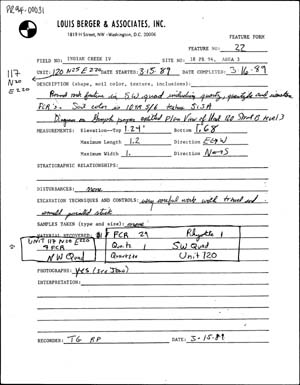 PR94-00031
LOUIS BERGER & ASSOCIATES, INC.
1819 H Street, NW - Washington, D.C. 20006
FEATURE FORM
FEATURE NO: 22
FIELD NO: INDIAN CREEK IV SITE NO: 18 PR 94, AREA 3
117 N20 E220
UNIT: 120 N25 E220 DATE STARTED: 3-15-89 DATE COMPLETED: 3-16-89
DESCRIPTION (shape, soil color, texture, inclusions):
Round rock feature in SW quad including quartz, quartzite and
FCR's. Soil color is 10YR 5/6
Diagram on Graph paper entitled Plan View of Unit 120 Level 3
MEASUREMENTS: Elevation--Top 1.24' Bottom 1.68
Maximum Length 1.2 Direction E&W
Maximum Width 1. Direction N&S
STRATIGRAPHIC RELATIONSHIPS:
DISTURBANCES: none
EXCAVATION TECHNIQUES AND CONTROLS: very careful work with trowel and
small pointed stick
SAMPLES TAKEN (type and size): none
MATERIAL RECOVERED: FCR 29 Rhyolite 1
UNIT 117 N20 E220 Quartz 1 SW Quad
9 FCR
NW Quad Quartzite Unit 120
PHOTOGRAPHS: yes
INTERPRETATION:
RECORDER: TG RP DATE: 3-15-89